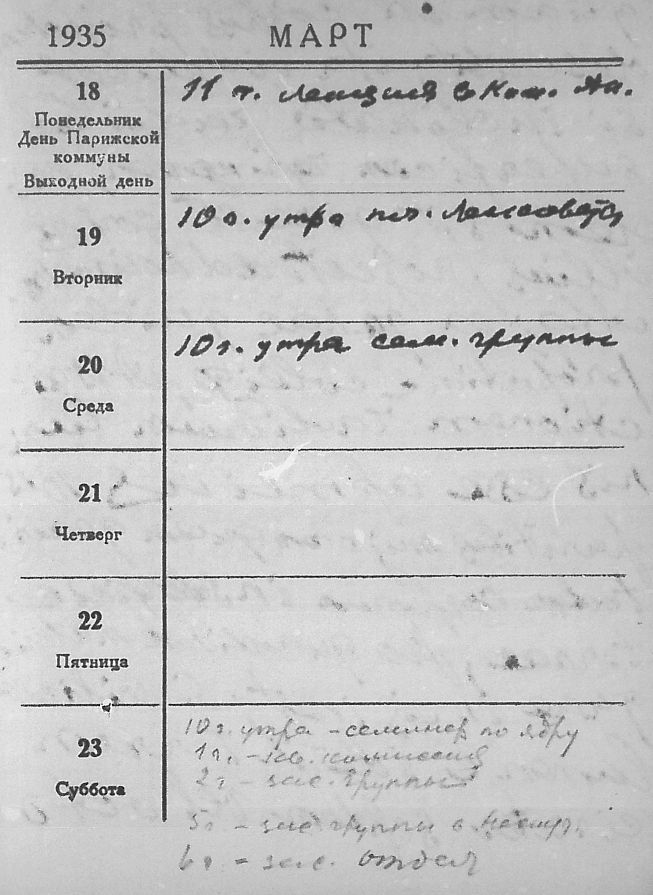 1935 МАРТ
18
Понедельник
День Парижской
коммуны
Выходной день
11 ч. лекция в Ком. Ак.
19
Вторник
10 ч. утра
20
Среда
10 ч. утра сем. группы
21
Четверг
22
Пятница
23
Суббота
10 ч. утра – семинар по ядру
1 ч. – комиссия
2 ч – зас. группы
5 ч – зас группы
6 ч – зас. отдел